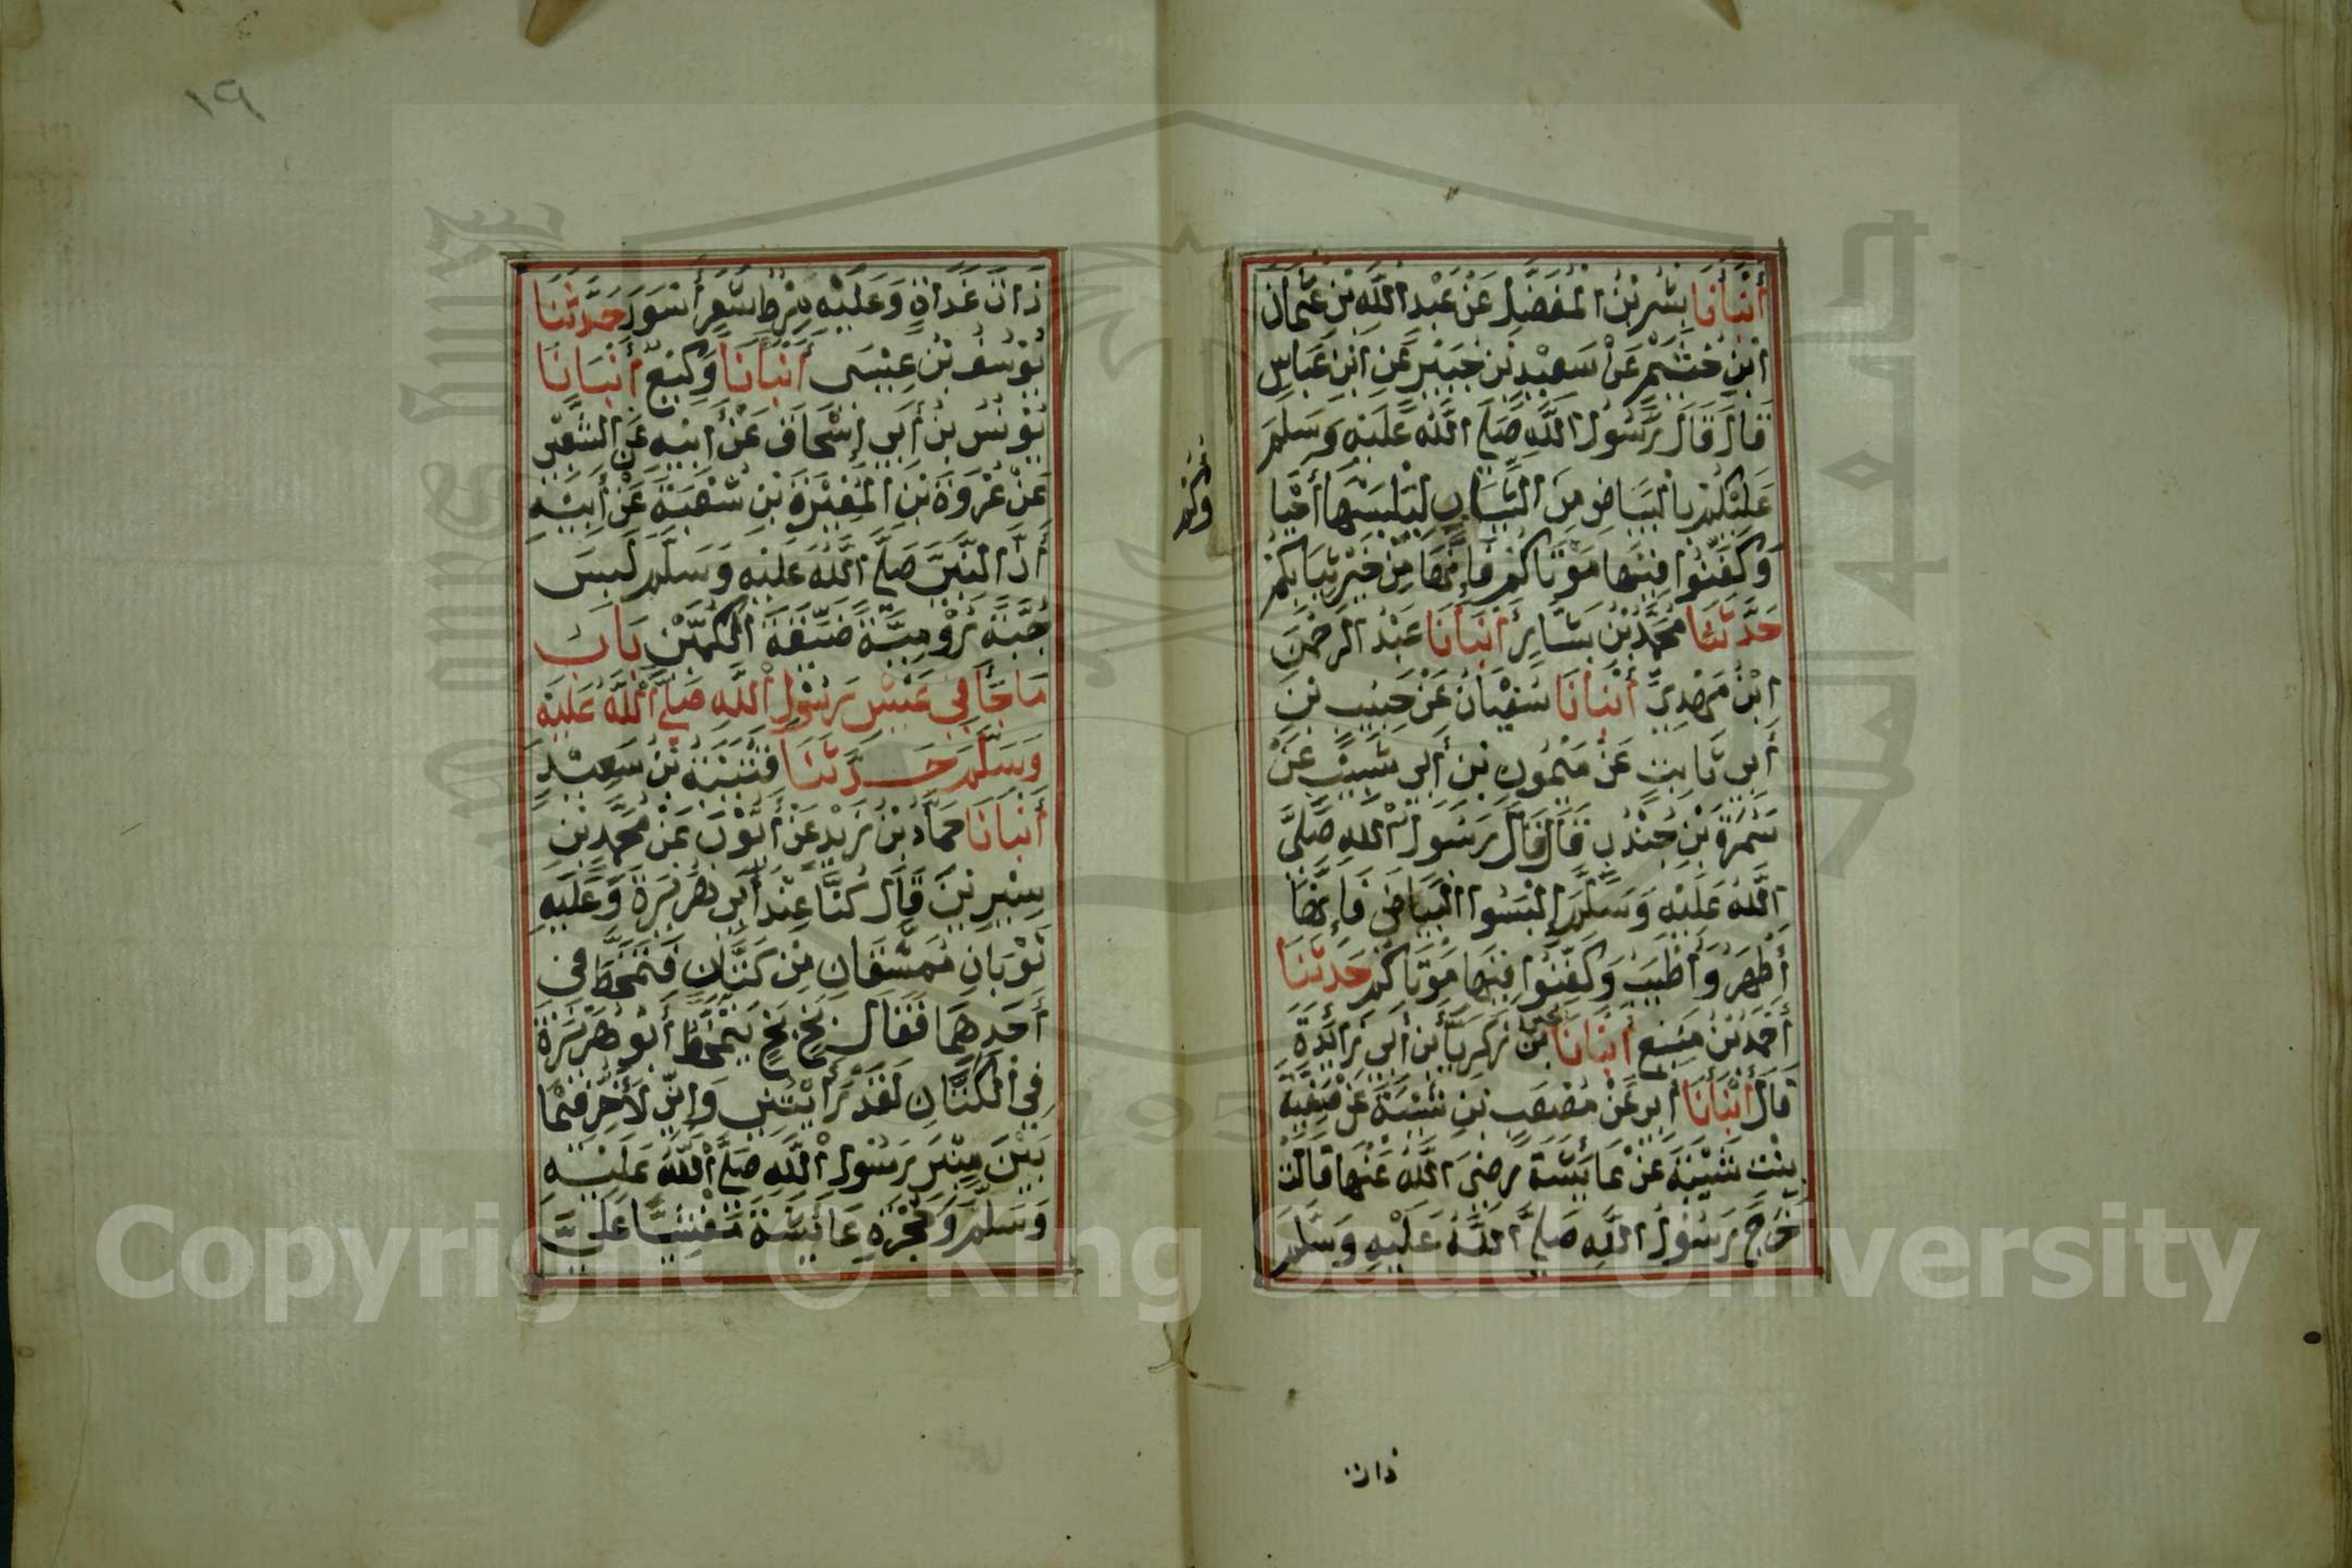 أَنْبَأَنَا بِشْرُ بْنُ الْمُفَضَّلِ عَنْ عَبْدِ اللَّهِ بْنِ عُثْمَانَ
ابْنِ خُثَيْمٍ عَنْ سَعِيْدِ بْنِ جُبَيْرٍ عَنِ ابْنِ عَبَّاسٍ
قَالَ قَالَ رَسُوْلُ اللَّهِ صَلَّى اللَّهُ عَلَيْهِ وَسَلَّمَ
عَلَيْكُمْ بِالْبَيَاضِ مِنَ الثِّيَابِ لِيَلْبَسْهَا أَحْيَا
وَكَفِّنُوا فِيْهَا مَوْتَاكُمْ فَإِنَّهَا مِنْ خَيْرِ ثِيَابِكُمْ
حَدَّثَنَا مُحَمَّدُ بْنُ بَشَّارٍ أَنْبَأَنَا عَبْدُ الرَّحْمٰنِ
ابْنُ مَهْدِيٍّ أَنْبَأَنَا سُفْيَانُ عَنْ حَبِيْبِ بْنِ
أَبِي ثَابِتٍ عَنْ مَيْمُونِ بْنِ أَبِي شَبِيْبٍ عَنْ
سَمُرَةَ بْنِ جُنْدُبٍ قَالَ قَالَ رَسُوْلُ اللَّهِ صَلَّى
اللَّهُ عَلَيْهِ وَسَلَّمَ إِلْبَسُوا الْبَيَاضَ فَإِنَّهَا
أَطْهَرُ وَأَطْيَبُ وَكَفِّنُوا فِيْهَا مَوْتَاكُمْ حَدَّثَنَا
أَحْمَدُ بْنُ مَنِيْعٍ أَنْبَأَنَا يحيى بْنُ زَكَرِيَّا بْنِ أَبِي زَائِدَةَ
قَالَ أَنْبَأَنَا أَبِي عَنْ مُصْعَبِ بْنِ شَيْبَةَ عَنْ صَفِيَّةَ
بِنْتِ شَيْبَةَ عَنْ عَائِشَةَ رَضِيَ اللَّهُ عَنْهَا قَالَتْ
خَرَجَ رَسُوْلُ اللَّهِ صَلَّى اللَّهُ عَلَيْهِ وَسَلَّمَ
ذات
وكم
١٩
ذَاتَ غَدَاةٍ وَعَلَيْهِ مِرْطُ شَعْرٍ أَسْوَدَ حَدَّثَنَا
يُوْسُفُ بْنُ عِيْسَى أَنْبَأَنَا وَكِيْعٌ أَنْبَأَنَا
يُوْنُسُ بْنُ أَبِي إِسْحَاقَ عَنْ أَبِيْهِ عَنِ الشَّعْبِيِّ
عَنْ عُرْوَةَ بْنِ الْمُغِيْرَةِ بْنِ شُعْبَةَ عَنْ أَبِيْهِ
أَنَّ النَّبِيَّ صَلَّى اللَّهُ عَلَيْهِ وَسَلَّمَ لَبِسَ
جُبَّةً رُوْمِيَّةً ضَيِّقَةَ الْكُمَّيْنِ بَابُ
مَا جَاءَ فِي عَيْشِ رَسُوْلِ اللَّهِ صَلَّى اللَّهُ عَلَيْهِ
وَسَلَّمَ حَدَّثَنَا قُتَيْبَةُ بْنُ سَعِيْدٍ
أَنْبَأَنَا حَمَّادُ بْنُ زَيْدٍ عَنْ أَيُّوْبَ عَنْ مُحَمَّدِ بْنِ
سِيْرِيْنَ قَالَ كُنَّا عِنْدَ أَبِي هُرَيْرَةَ وَعَلَيْهِ
ثَوْبَانِ مُمَشَّقَانِ مِنْ كَتَّانٍ فَتَمَخَّطَ فِي
أَحَدِهِمَا فَقَالَ بَخٍ بَخٍ يَتَمَخَّطُ أَبُو هُرَيْرَةَ
فِي الْكَتَّانِ لَقَدْ رَأَيْتُنِي وَإِنِّي لَأَخِرُّ فِيْمَا
بَيْنَ مِنْبَرِ رَسُوْلِ اللَّهِ صَلَّى اللَّهُ عَلَيْهِ
وَسَلَّمَ وَحُجْرَةِ عَائِشَةَ مَغْشِيًّا عَلَيَّ
Copyright © King Saud University